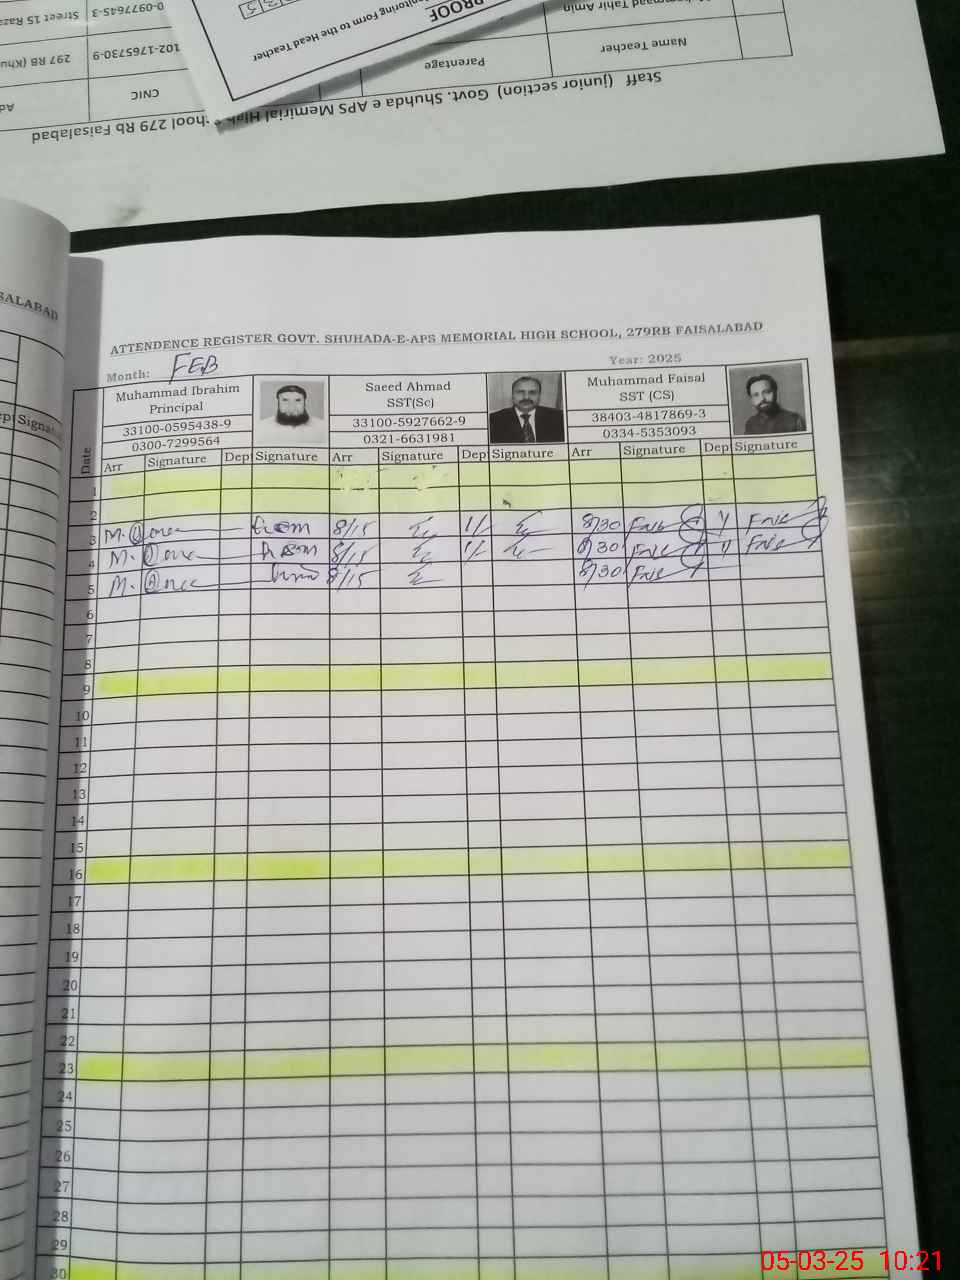 0-0977645-3 Street 15 Raza
102-1765730-9 297 RB (Khu
CNIC Ad
PROOF
nitoring Form to the Head Teacher
Tahir Amin
Name Teacher Parentage
Staff (junior section) Govt. Shuhda e APS Memirial High School 279 Rb Faisalabad
SALABAD
ATTENDENCE REGISTER GOVT. SHUHADA-E-APS MEMORIAL HIGH SCHOOL, 279RB FAISALABAD
Month: FEB Year: 2025
Muhammad Ibrahim Saeed Ahmad Muhammad Faisal
Principal SST(Sc) SST (CS)
33100-0595438-9 33100-5927662-9 38403-4817869-3
0300-7299564 0321-6631981 0334-5353093
Date Arr Signature Dep Signature Arr Signature Dep Signature Arr Signature Dep Signature
1
2
3 8/15 8/30
4 8/15 8/30
5 8/15 8/30
6
7
8
9
10
11
12
13
14
15
16
17
18
19
20
21
22
23
24
25
26
27
28
29
30
05-03-25 10:21